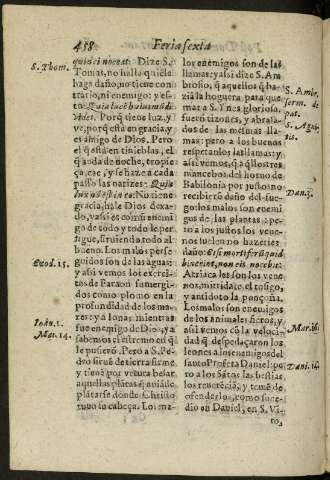 458
Feria sexta
S. Thom.
quid ei noceat: Dize S.
Tomas, no halla quiẽ le
haga daño, no tiene con
trario, ni enemigo: y es-
to:
videt. Porq̃ tiene luz, y
ve, porq̃ està en gracia, y
es amigo de Dios. Pero
el q̃ està en tinieblas, el q̃
anda de noche, tropie-
ça, cae, y se haze a cada
passo las narizes: Quia
lux nõ est in eo. No tiene
gracia, hale Dios dexa-
do, y assi es comũ enemi
go de todo y todo le per
sigue, siruiendo todo al
bueno. Los malos perse
guidos son de las aguas:
Exod. 15.
y assi vemos los exerci-
tos de Faraon sumergi-
dos como plomo en la
profundidad de los ma-
res: y a Ionas mientras
Ioãn. 1.
fue enemigo de Dios, ya
Mat. 14.
sabemos el estremo en q̃
le pusierõ. Pero a S. Pe-
dro sirue de tierra firme
y tiene por ventura besar
aquellas plãtas, q̃ auiã de
plãtarse dõnde Christo
tuuo su cabeça. Los ma-
los enemigos son de las
llamas: y assi dize S. Am
brosio, q̃ aquellos q̃ ha-
zia la hoguera para que
mar a S. Ynes gloriosa,
fuerõ tizones, y abrasa-
dos de las mesmas lla-
mas: pero a los buenos
respetanlos las llamas: y
assi vemos, q̃ a q̃llos tres
mancebos del horno de
Babilonia por justos no
recibierõ daño del fue-
go: los malos son enemi
gos de las plantas, pe-
ro a los justos los vene-
nos suelen no hazerles
daño: Et si mortiferũ quid
biberint, non eis nocebit:
Atriaca les son los vene
nos, mitridate, el tosigo,
y antidoto la pençoña.
Los malos son enemigos
de los animales fieros, y
assi vemos cõ la veloci-
dad q̃ despedaçaron los
leones a los enemigos del
santo Profeta Daniel: pe
ro a los Sãtos las bestias
los reuerẽcia, y temẽ de
ofenderlos, como suce-
dio en Daniel, en S. Vi-
to,
S. Amb.
serm. de
pas.
S. Agn-
tis.
Dan. 3.
Mar. 16.
Dani. 14.